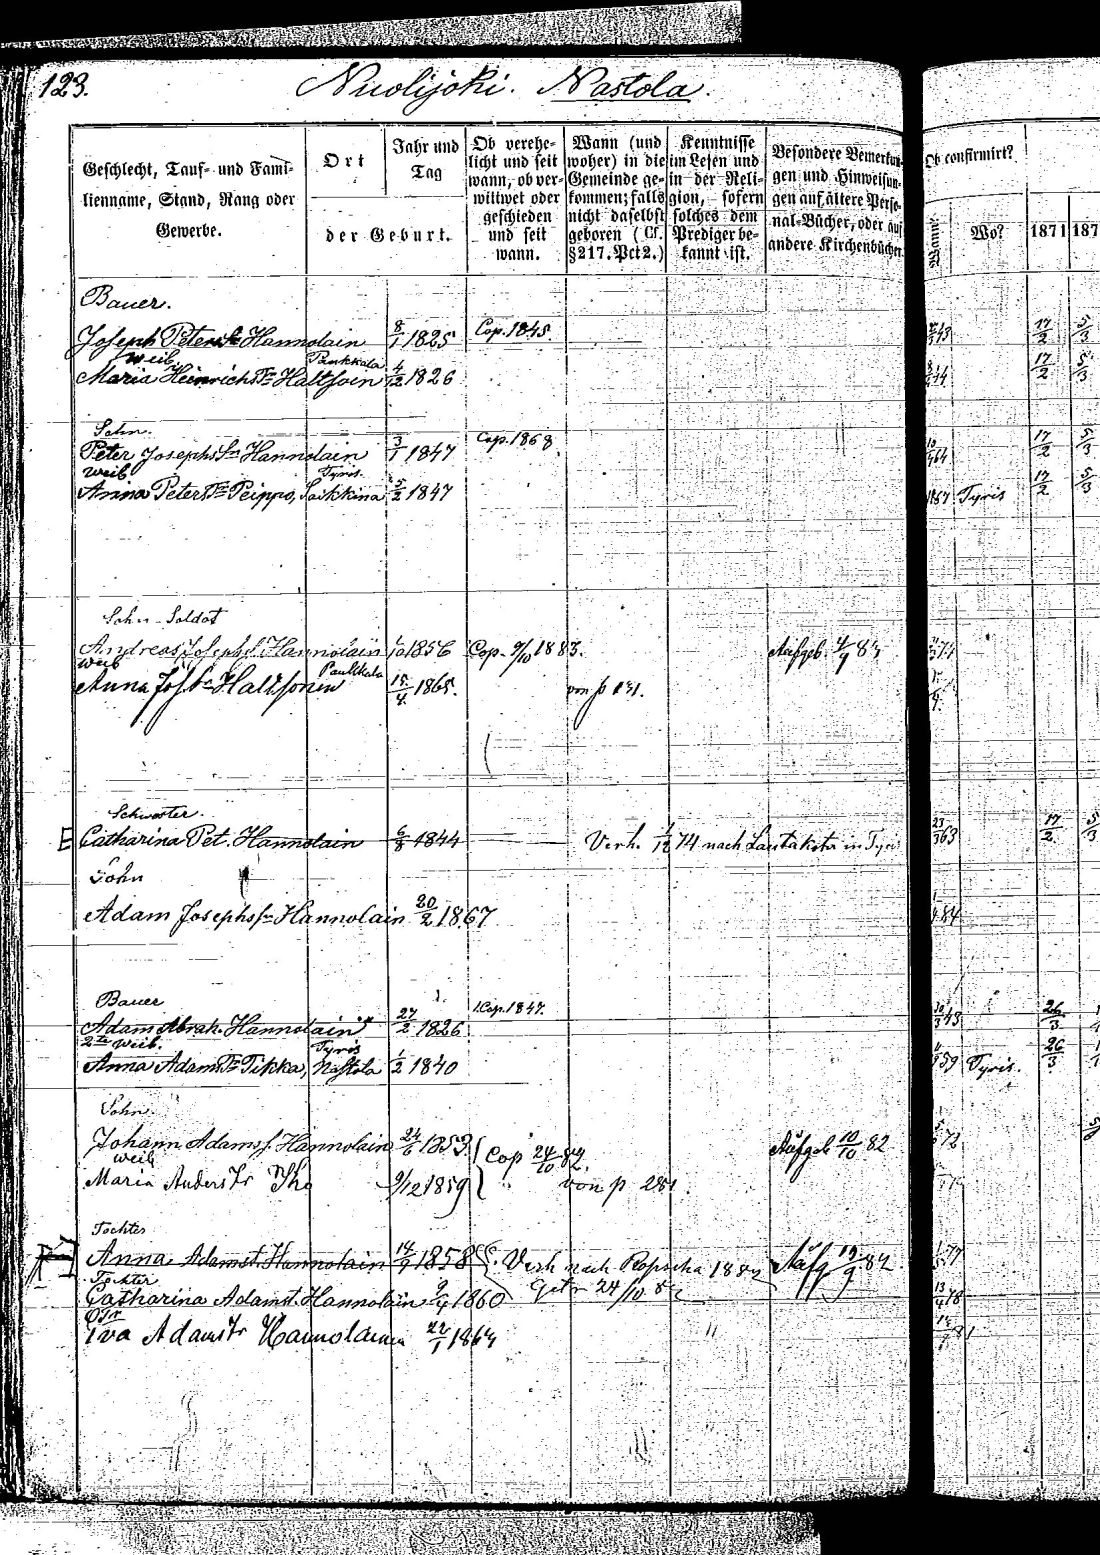 123.
Nuolijoki. Nastola.
Geschlecht, Tauf- und Fami-
lienname, Stand, Rang oder
Gewerbe.
Ort
Jahr und
Tag
der Geburt.
Ob verehe-
licht und seit
wann, ob ver-
wittwet oder
geschieden
und seit
wann.
Wann (und
woher) in die
Gemeinde ge-
kommen; falls
nicht daselbst
geboren (Cf.
§ 217. Pct 2.)
Kenntnisse
im Lesen und
in der Reli-
gion, sofern
solches dem
Prediger be-
kannt ist.
Besondere Bemerkun-
gen und Hinweisun-
gen auf ältere Perso-
nal-Bücher, oder auf
andere Kirchenbücher.
Ob confirmirt?
Wann?
Wo?
1871
187
Bauer.
Joseph Peters Hannolain 8/1 1825 Cop. 1845. 43 17/2 5/3
Weib
Maria Heinrichs Tr Haltsoin Pankkala 4/12 1826 44 17/2 5/3
Sohn.
Peter Josephs Sn Hannolain 3/1 1847 Cop. 1868. 64 17/2 5/3
Weib Tyris
Anna Peters Tr Peippo, Saikkina 5/2 1847 1867 Tyris 17/2 5/3
Sohn-Soldat
Andreas Josephs S. Hannolain 1/10 1856 Cop. 9/10 1883. Aufgeb. 4/9 83 74
Weib Paukkala
Anna Jos. Tr Haltsonen 15/4 1865. von p 131.
Schwester.
Catharina Pet. Hannolain 6/8 1844 Verh. 1/12 74 nach Lautakota in Tyris 23/3 63 17/2 5/3
Sohn
Adam Josephs Sn Hannolain 20/2 1867 84
Bauer 1. Cop. 1847.
Adam Abrah. Hannolain 27/2 1826 43 26/3
2te Weib. Tyris
Anna Adams Tr Tikka, Nastola 1/2 1840 59 Tyris. 26/3
Sohn
Johann Adams S. Hannolain 24/6 1853. Cop 24/10 82. Aufgeb 10/10 82 72
Weib
Maria Anders Tr Iho 9/12 1859 von p 281.
Tochter
Anna Adamst. Hannolain 14/9 1858 Verh nach Ropscha 1882 Aufg 19/9 82 77
Tochter Getr 24/10 82
Catharina Adamst. Hannolain 9/4 1860 13/4 78
Eva Adams Tr Hannolainen 22/1 1864 81